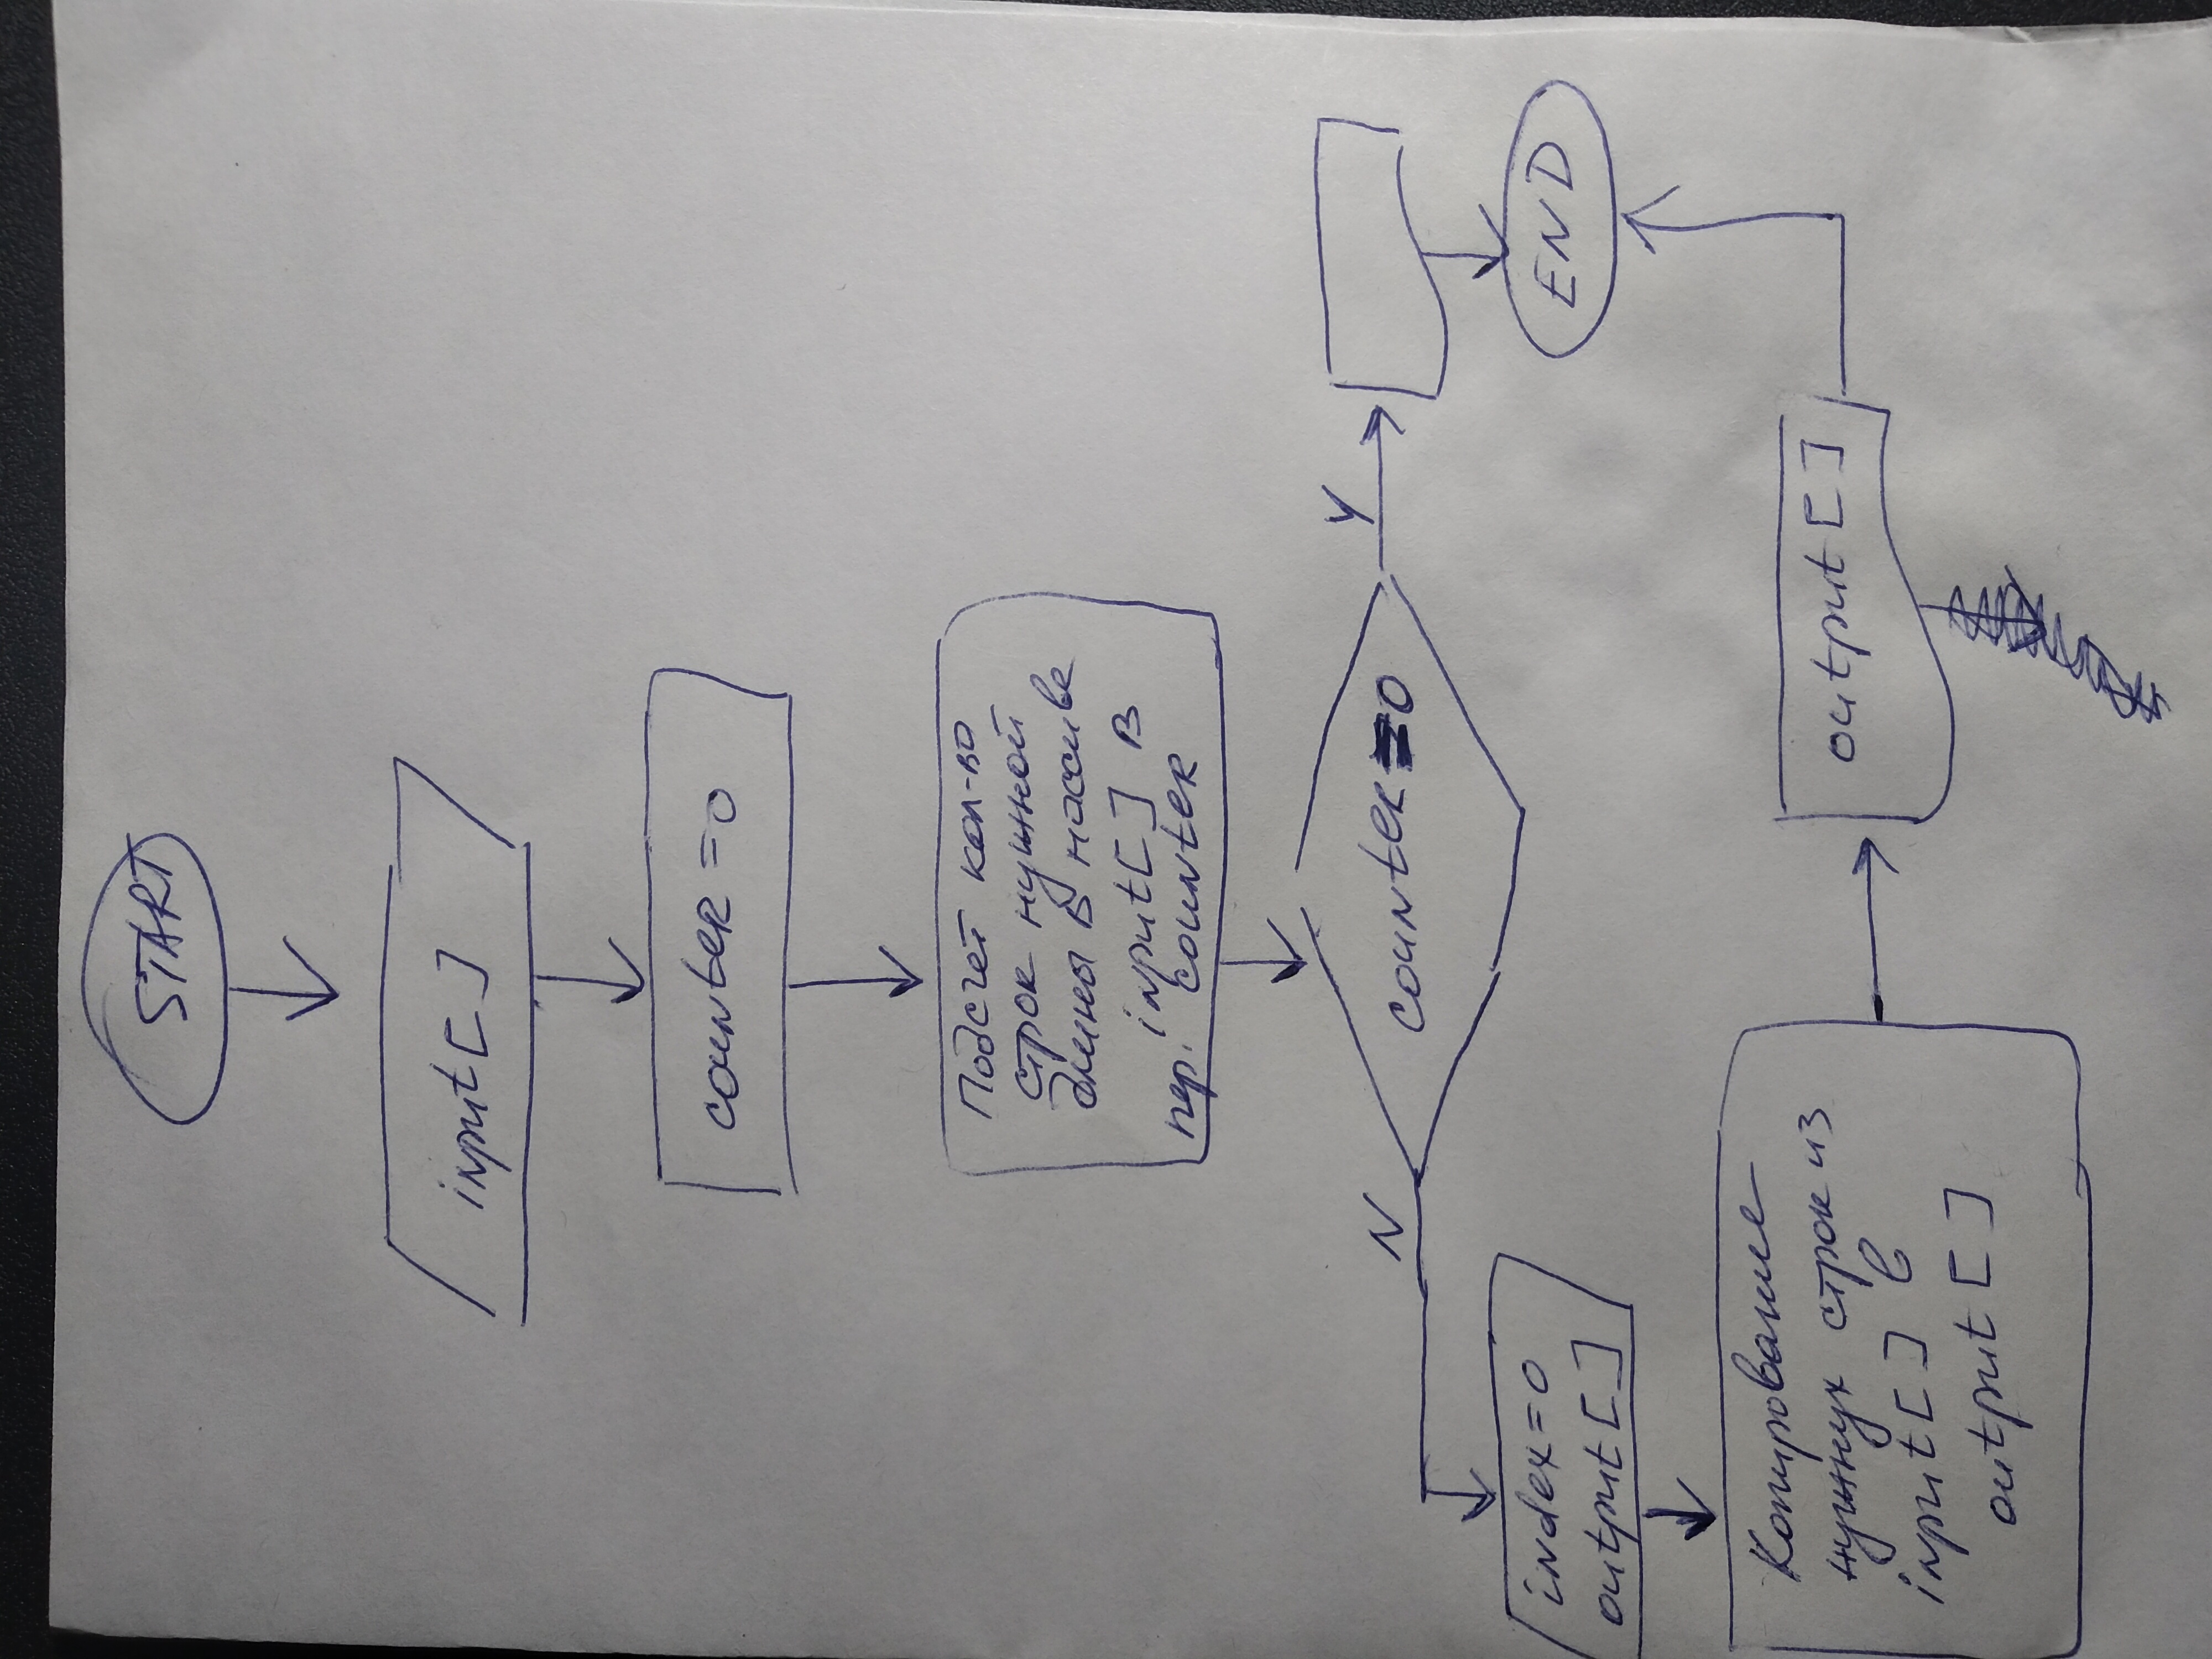 START
input[ ]
counter =0
Подсчет кол-во
строк нужной
длины в массиве
input[ ] в
пер. counter
counter=0
N
Y
index=0
output[ ]
END
Копирование
нужнух строк из
input[ ] в
output[ ]
output[ ]